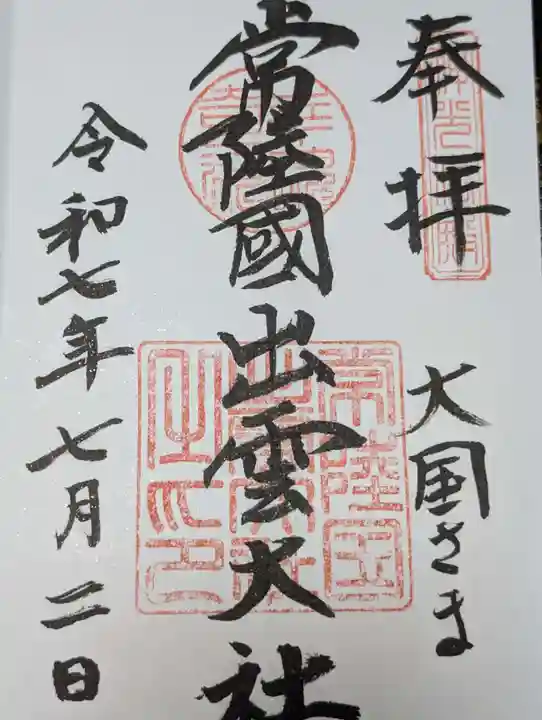 奉拝
大国さま
常陸國出雲大社
令和七年七月二日
常陸国
出雲大社
之印